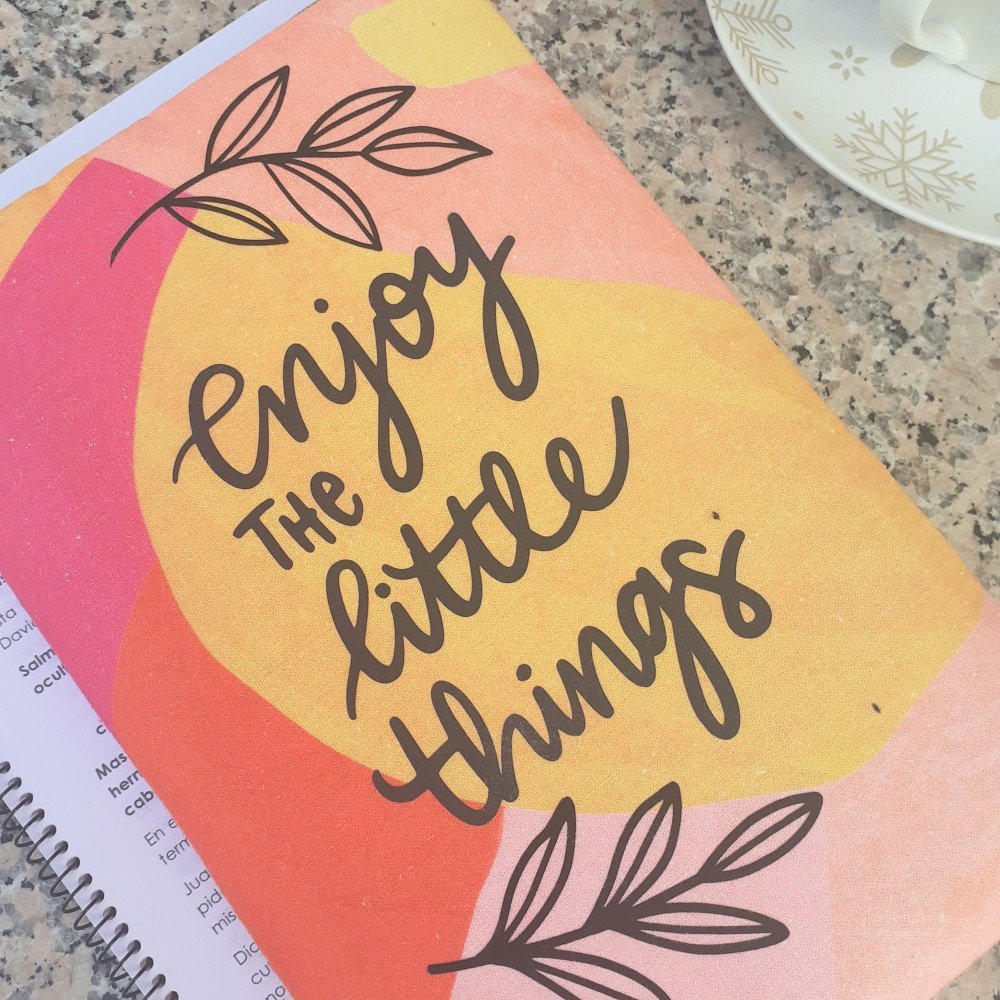 enjoy
THe
little
things
sta
David
Salm
ocul
Mas
herm
cab
En e
term
Jua
pid
mis
Dic
cu
no